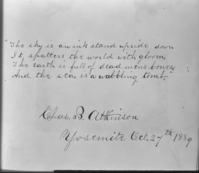 "The sky is an ink stand upside down
It spatters the world with gloom
The earth is full of dead men's bones
And the sea is a wabbling tomb"
Chas. B. Atkinson
Yosemite Oct. 27th 1889